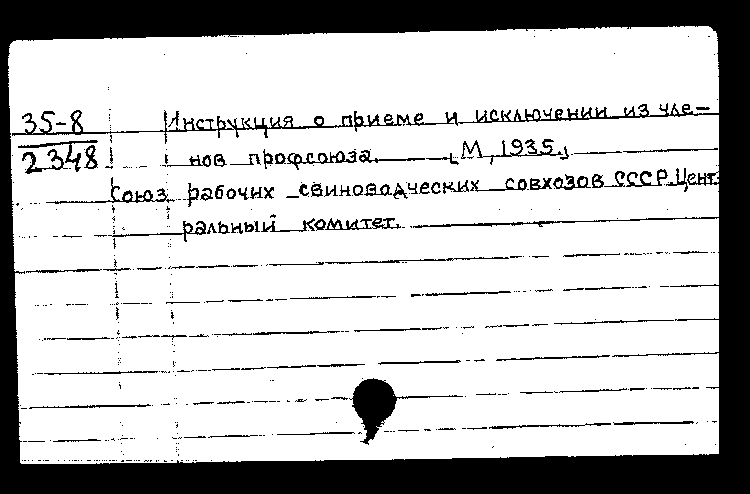 35-8
2348
Инструкция о приеме и исключении из чле-
нов профсоюза. [М, 1935.]
Союз рабочих свиноводческих совхозов СССР. Цент-
ральный комитет.